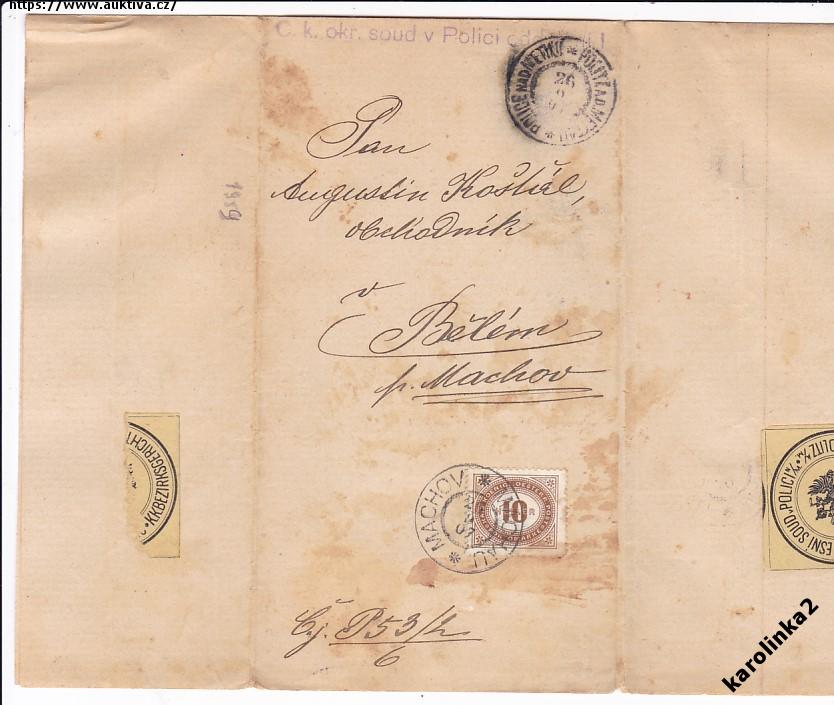 https://www.auktiva.cz/
C. k. okr. soud v Polici
POLICE NAD METUJÍ * POLITZ A.D. METTAU *
26
Pan
Augustin Košťál,
obchodník
v
Bělém
p. Machov
1959
MACHOV
10
Čj. P 53/2
6
K K BEZIRKSGERICHT
ESNÍ SOUD V POLICI
POLITZ
karolinka2